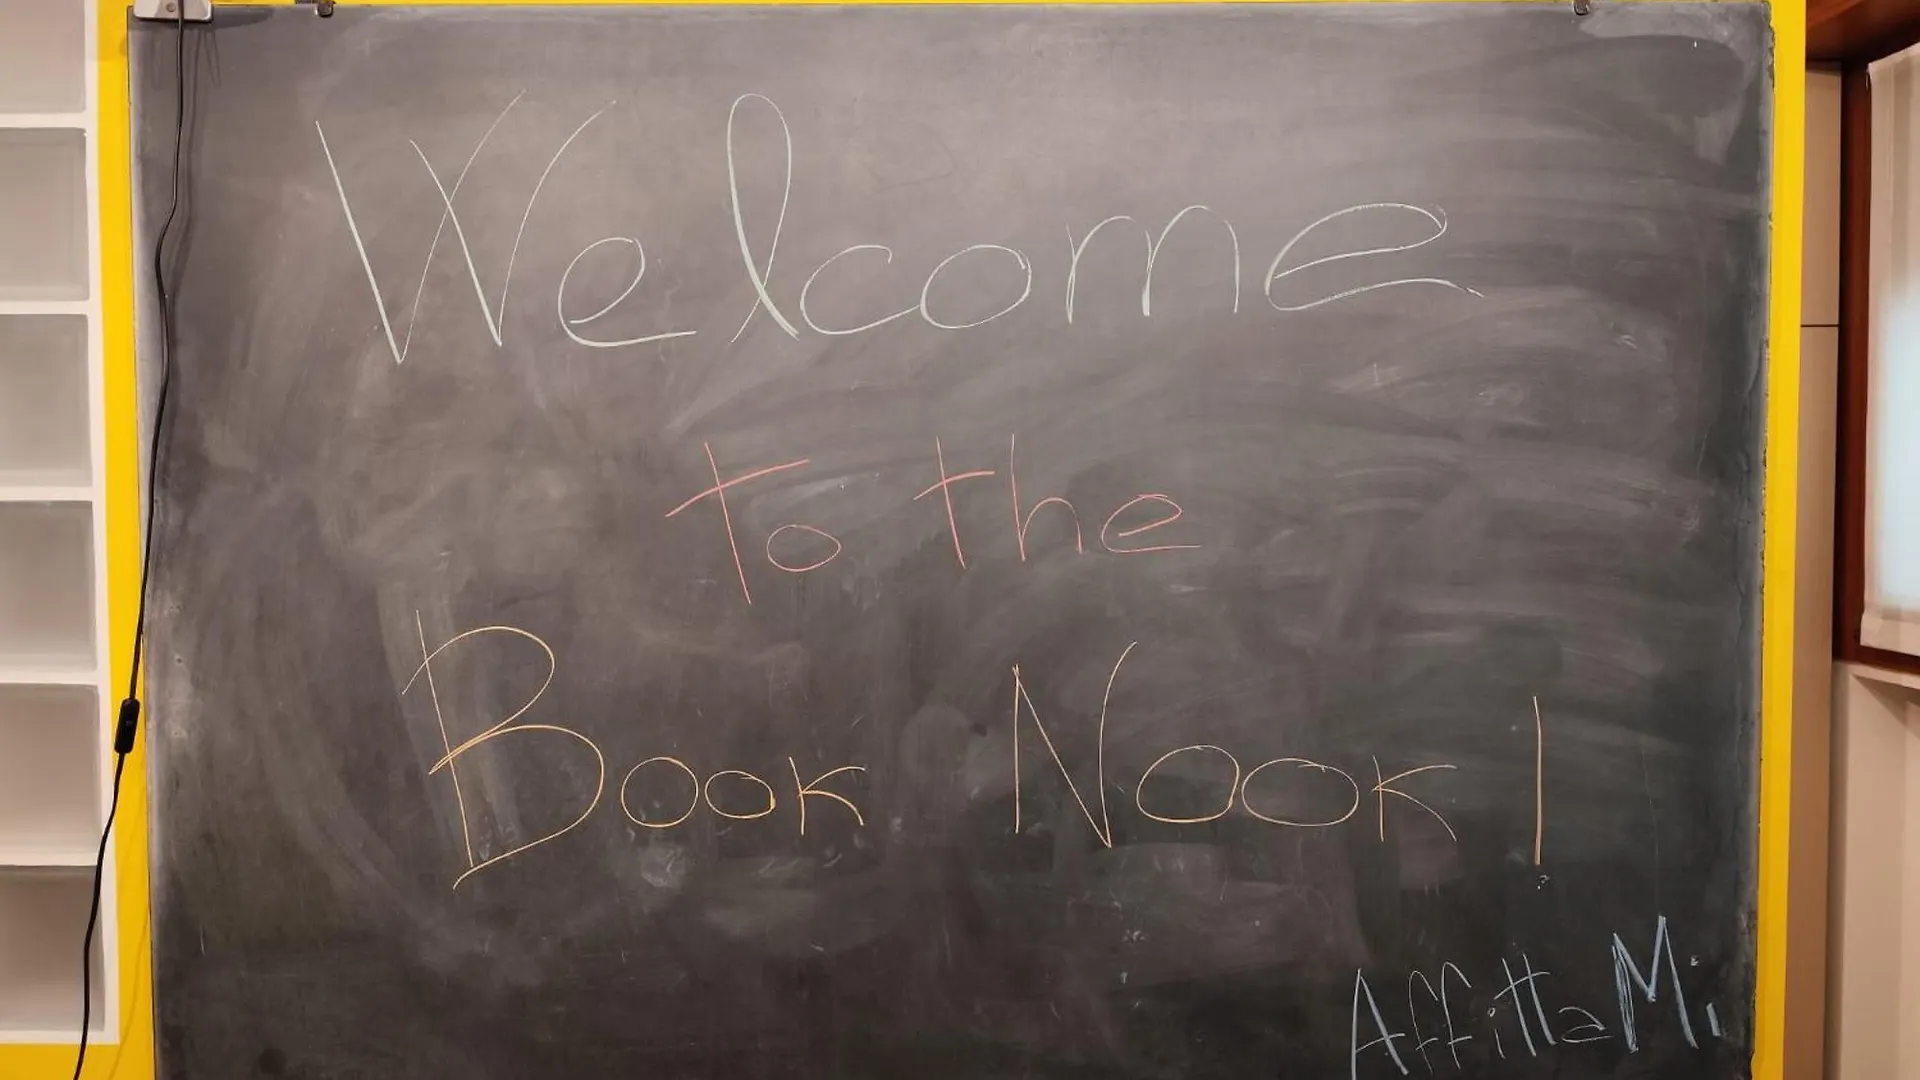 Welcome
to the
Book Nook!
AffittaMi